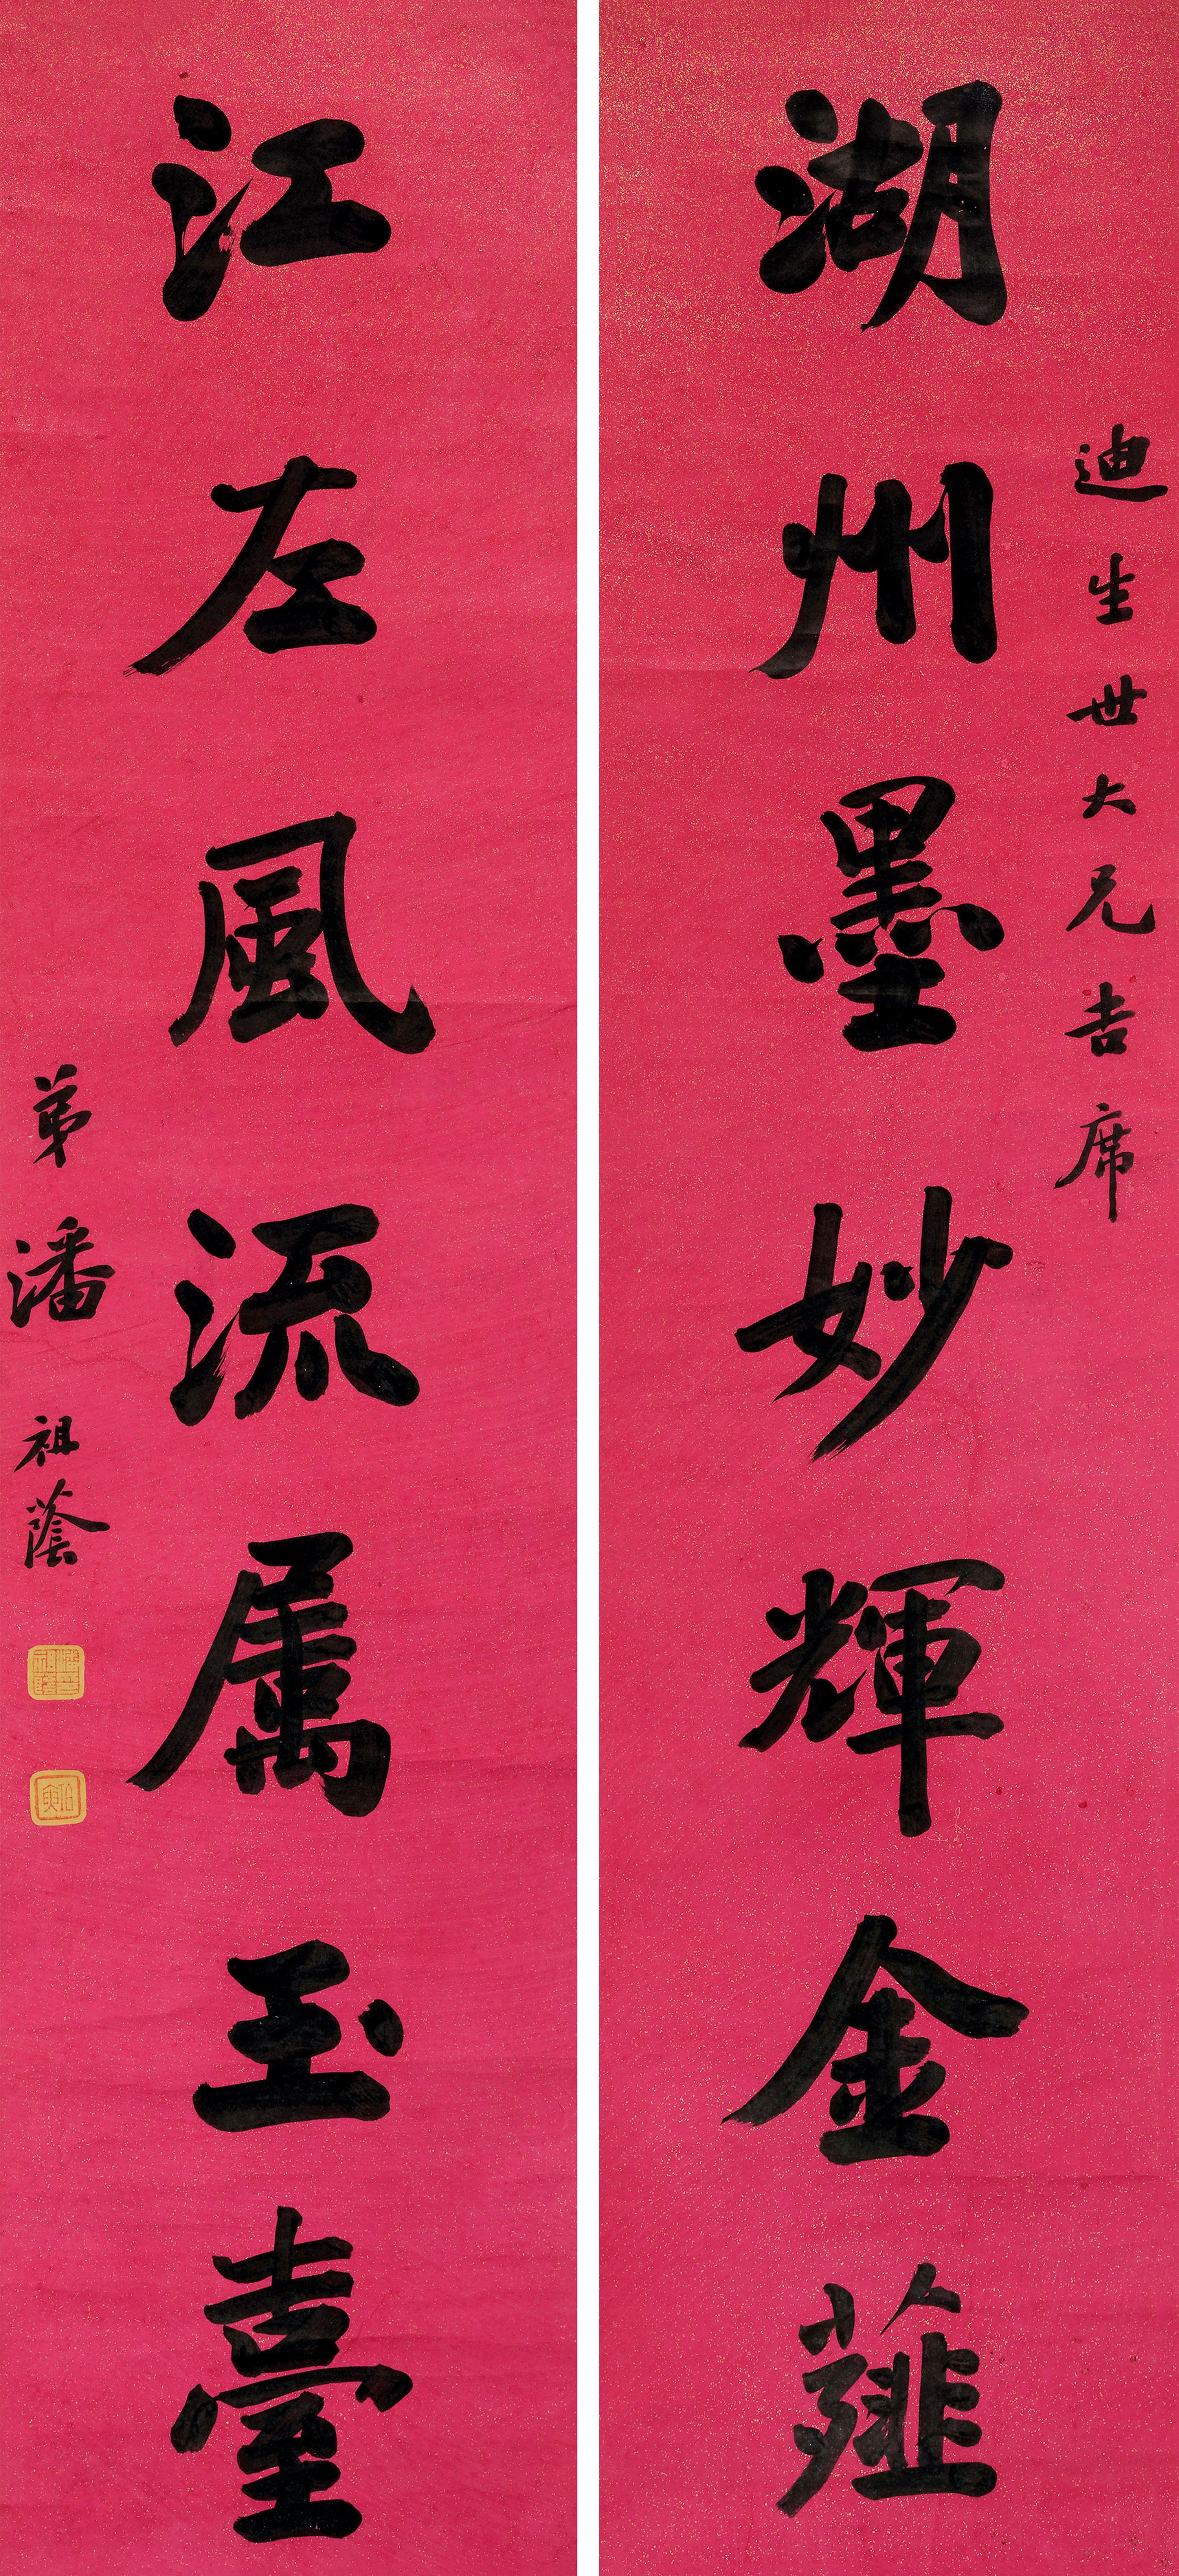 迪生世大兄吉席
湖州墨妙輝金薤
江左風流属玉臺
弟潘祖蔭
潘祖蔭
伯寅